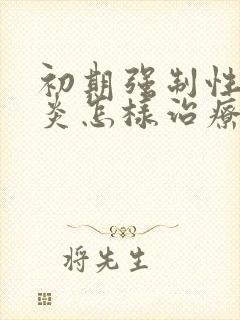 初期强制性
炎怎样治疗
将先生